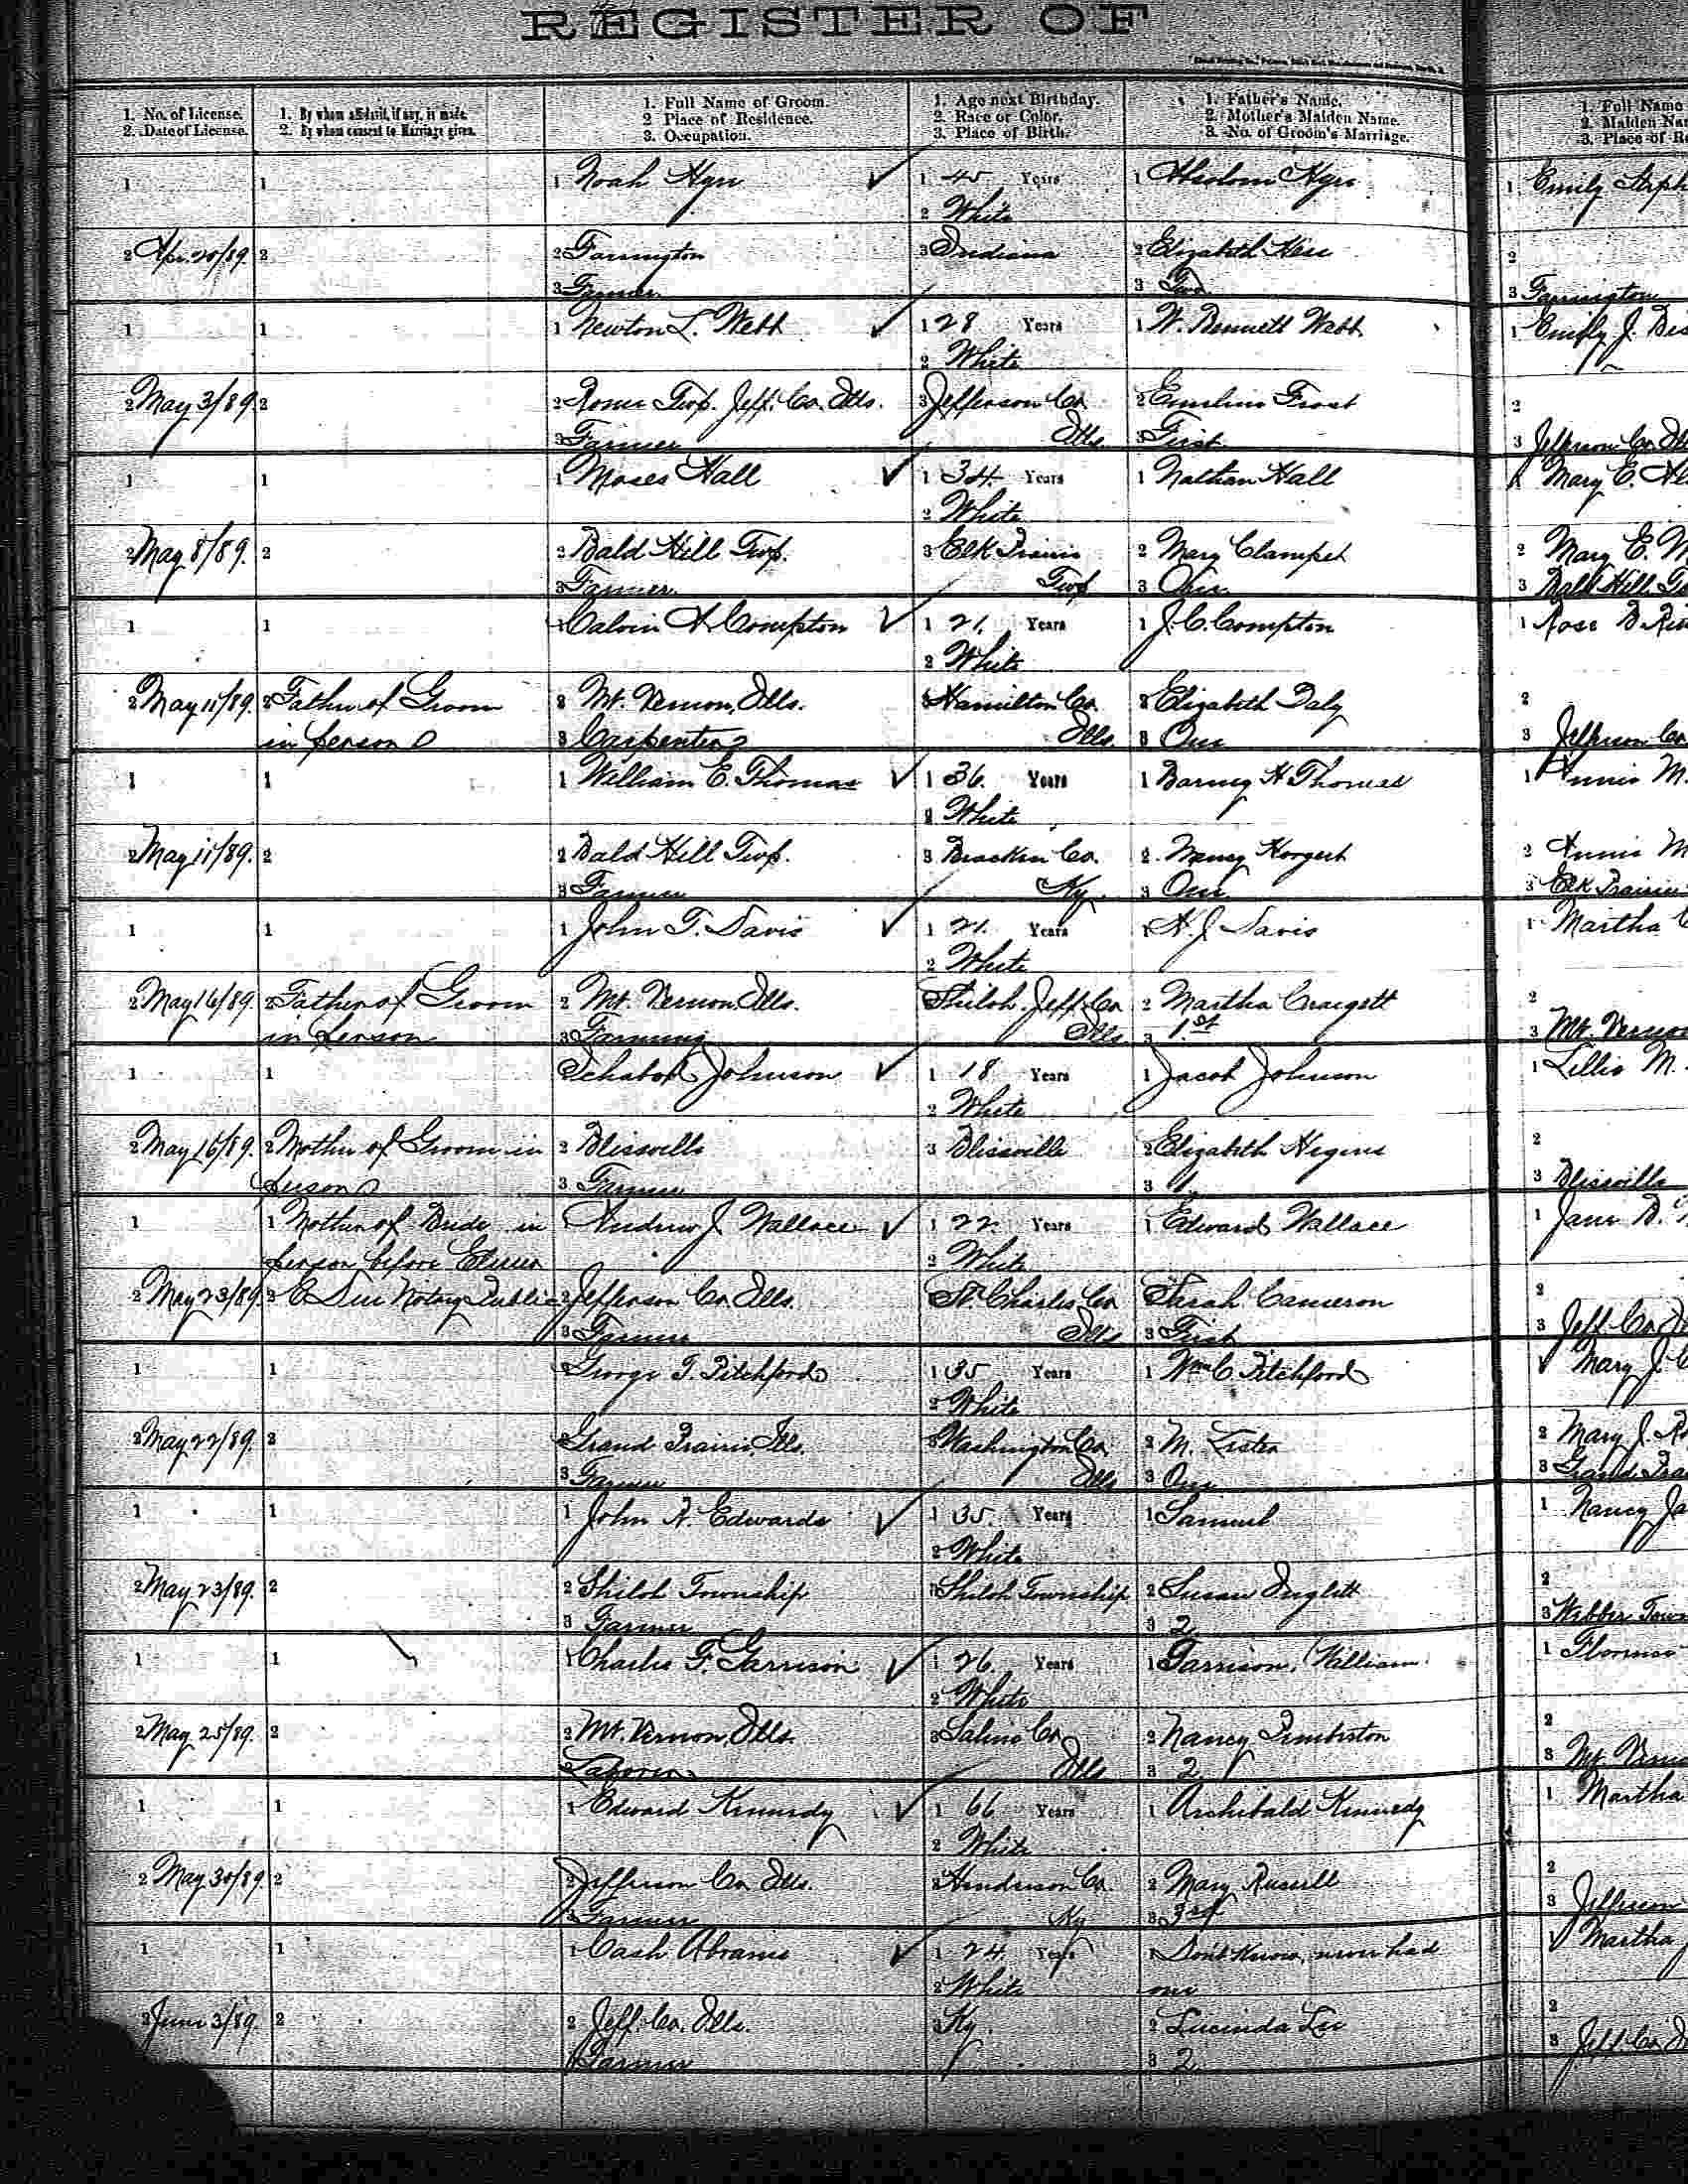 REGISTER OF
1. No. of License.
2. Date of License.
1. By whom affidavit, if any, is made.
2. By whom consent to Marriage given.
1. Full Name of Groom.
2 Place of Residence.
3. Occupation.
1. Age next Birthday.
2. Race or Color.
3. Place of Birth.
1. Father's Name.
2. Mother's Maiden Name.
3. No. of Groom's Marriage.
1. Full Name
2. Maiden Na
3. Place of Re
1 1 1 Noah 1 45 Years 1 1 Emily
2 White
2 Apr. 20/89 2 2 Farrington 3 Indiana 2 Elizabeth 2
3 Farmer 3 Two 3 Farrington
1 1 1 Newton L. Webb 1 28 Years 1 W. Bennett Webb 1 Emily J.
2 White
2 May 3/89 2 2 Rome Twp. Jeff. Co. Ills. 3 Jefferson Co. 2 Emeline Frost 2
3 Farmer Ills. 3 First 3 Jefferson Co. Ill
1 1 1 Moses Hall 1 34 Years 1 Nathan Hall 1 Mary E.
2 White
2 May 8/89. 2 2 Bald Hill Twp. 3 Elk Prairie 2 Mary Clampet 2 Mary E.
3 Farmer Twp 3 One 3 Bald Hill
1 1 1 Calvin A. Compton 1 21. Years 1 J. C. Compton 1 Rose B.
2 White
2 May 11/89. 2 Father of Groom 2 Mt. Vernon, Ills. 3 Hamilton Co. 2 Elizabeth Daly 2
in person 3 Carpenter Ills. 3 One 3 Jefferson Co
1 1 1 William E. Thomas 1 36. Years 1 Barney H Thomas 1 Annie M.
2 White
2 May 11/89. 2 2 Bald Hill Twp. 3 Bracken Co. 2 Nancy 2 Annie M
3 Farmer Ky. 3 One 3 Elk Prairie
1 1 1 John T. Davis 1 21. Years 1 Davis 1 Martha
2 White
2 May 16/89. 2 Father of Groom 2 Mt. Vernon, Ills. Shiloh, Jeff. Co 2 Martha 2
in person 3 Farming Ills 3 1st 3 Mt. Vernon
1 1 Johnson 1 18 Years 1 Jacob Johnson 1 Lillie M.
2 White
2 May 16/89. 2 Mother of Groom in 2 Blissville 3 Blissville 2 Elizabeth 2
person 3 Farmer 3 1 3 Blissville
1 1 Mother of Bride in 1 Andrew J. Wallace 1 22 Years 1 Edward Wallace 1 Jane B.
person before 2 White
2 May 23/89. 2 Notary Public 2 Jefferson Co. Ills. St. Charles Co Sarah Cameron 2
3 Farmer Ills 3 First 3 Jeff. Co.
1 1 George T. Pitchford 1 35 Years 1 Wm C. Pitchford Mary J.
2 White
2 May 22/89. 2 2 Grand Prairie, Ills. 3 Washington Co. 2 M. Lister 2 Mary J.
3 Farmer Ills 3 One 3 Grand
1 1 1 John Edwards 1 35. Years 1 Samuel 1 Nancy
2 White
2 May 23/89. 2 2 Shiloh Township 3 Shiloh Township 2 Susan 2
3 Farmer 3 2 3 Webber Tow
1 1 1 Charles F. Garrison 1 26 Years 1 Garrison, William 1 Florence
2 White
2 May 25/89. 2 2 Mt. Vernon, Ills. 3 Saline Co. 2 Nancy 2
3 Laborer Ills 3 2 3 Mt. Verno
1 1 1 Edward Kennedy 1 66 Years 1 Archibald Kennedy 1 Martha
2 White
2 May 30/89. 2 2 Jefferson Co. Ills. 3 Henderson Co. 2 Mary Russell 2
3 Farmer Ky 3 3rd 3 Jefferson
1 1 1 Cash Abrams 1 24 Years 1 Don't Know, never had 1 Martha
2 White one
2 June 3/89. 2 2 Jeff. Co. Ills. 3 Ky. 2 Lucinda 2
3 Farmer 3 2 3 Jeff. Co.